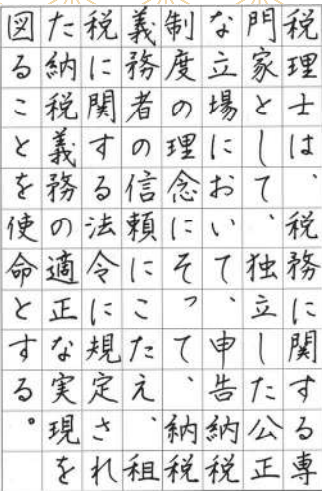 税理士は、税務に関する専
門家として、独立した公正
な立場において、申告納税
制度の理念にそって、納税
義務者の信頼にこたえ、租
税に関する法令に規定され
た納税義務の適正な実現を
図ることを使命とする。